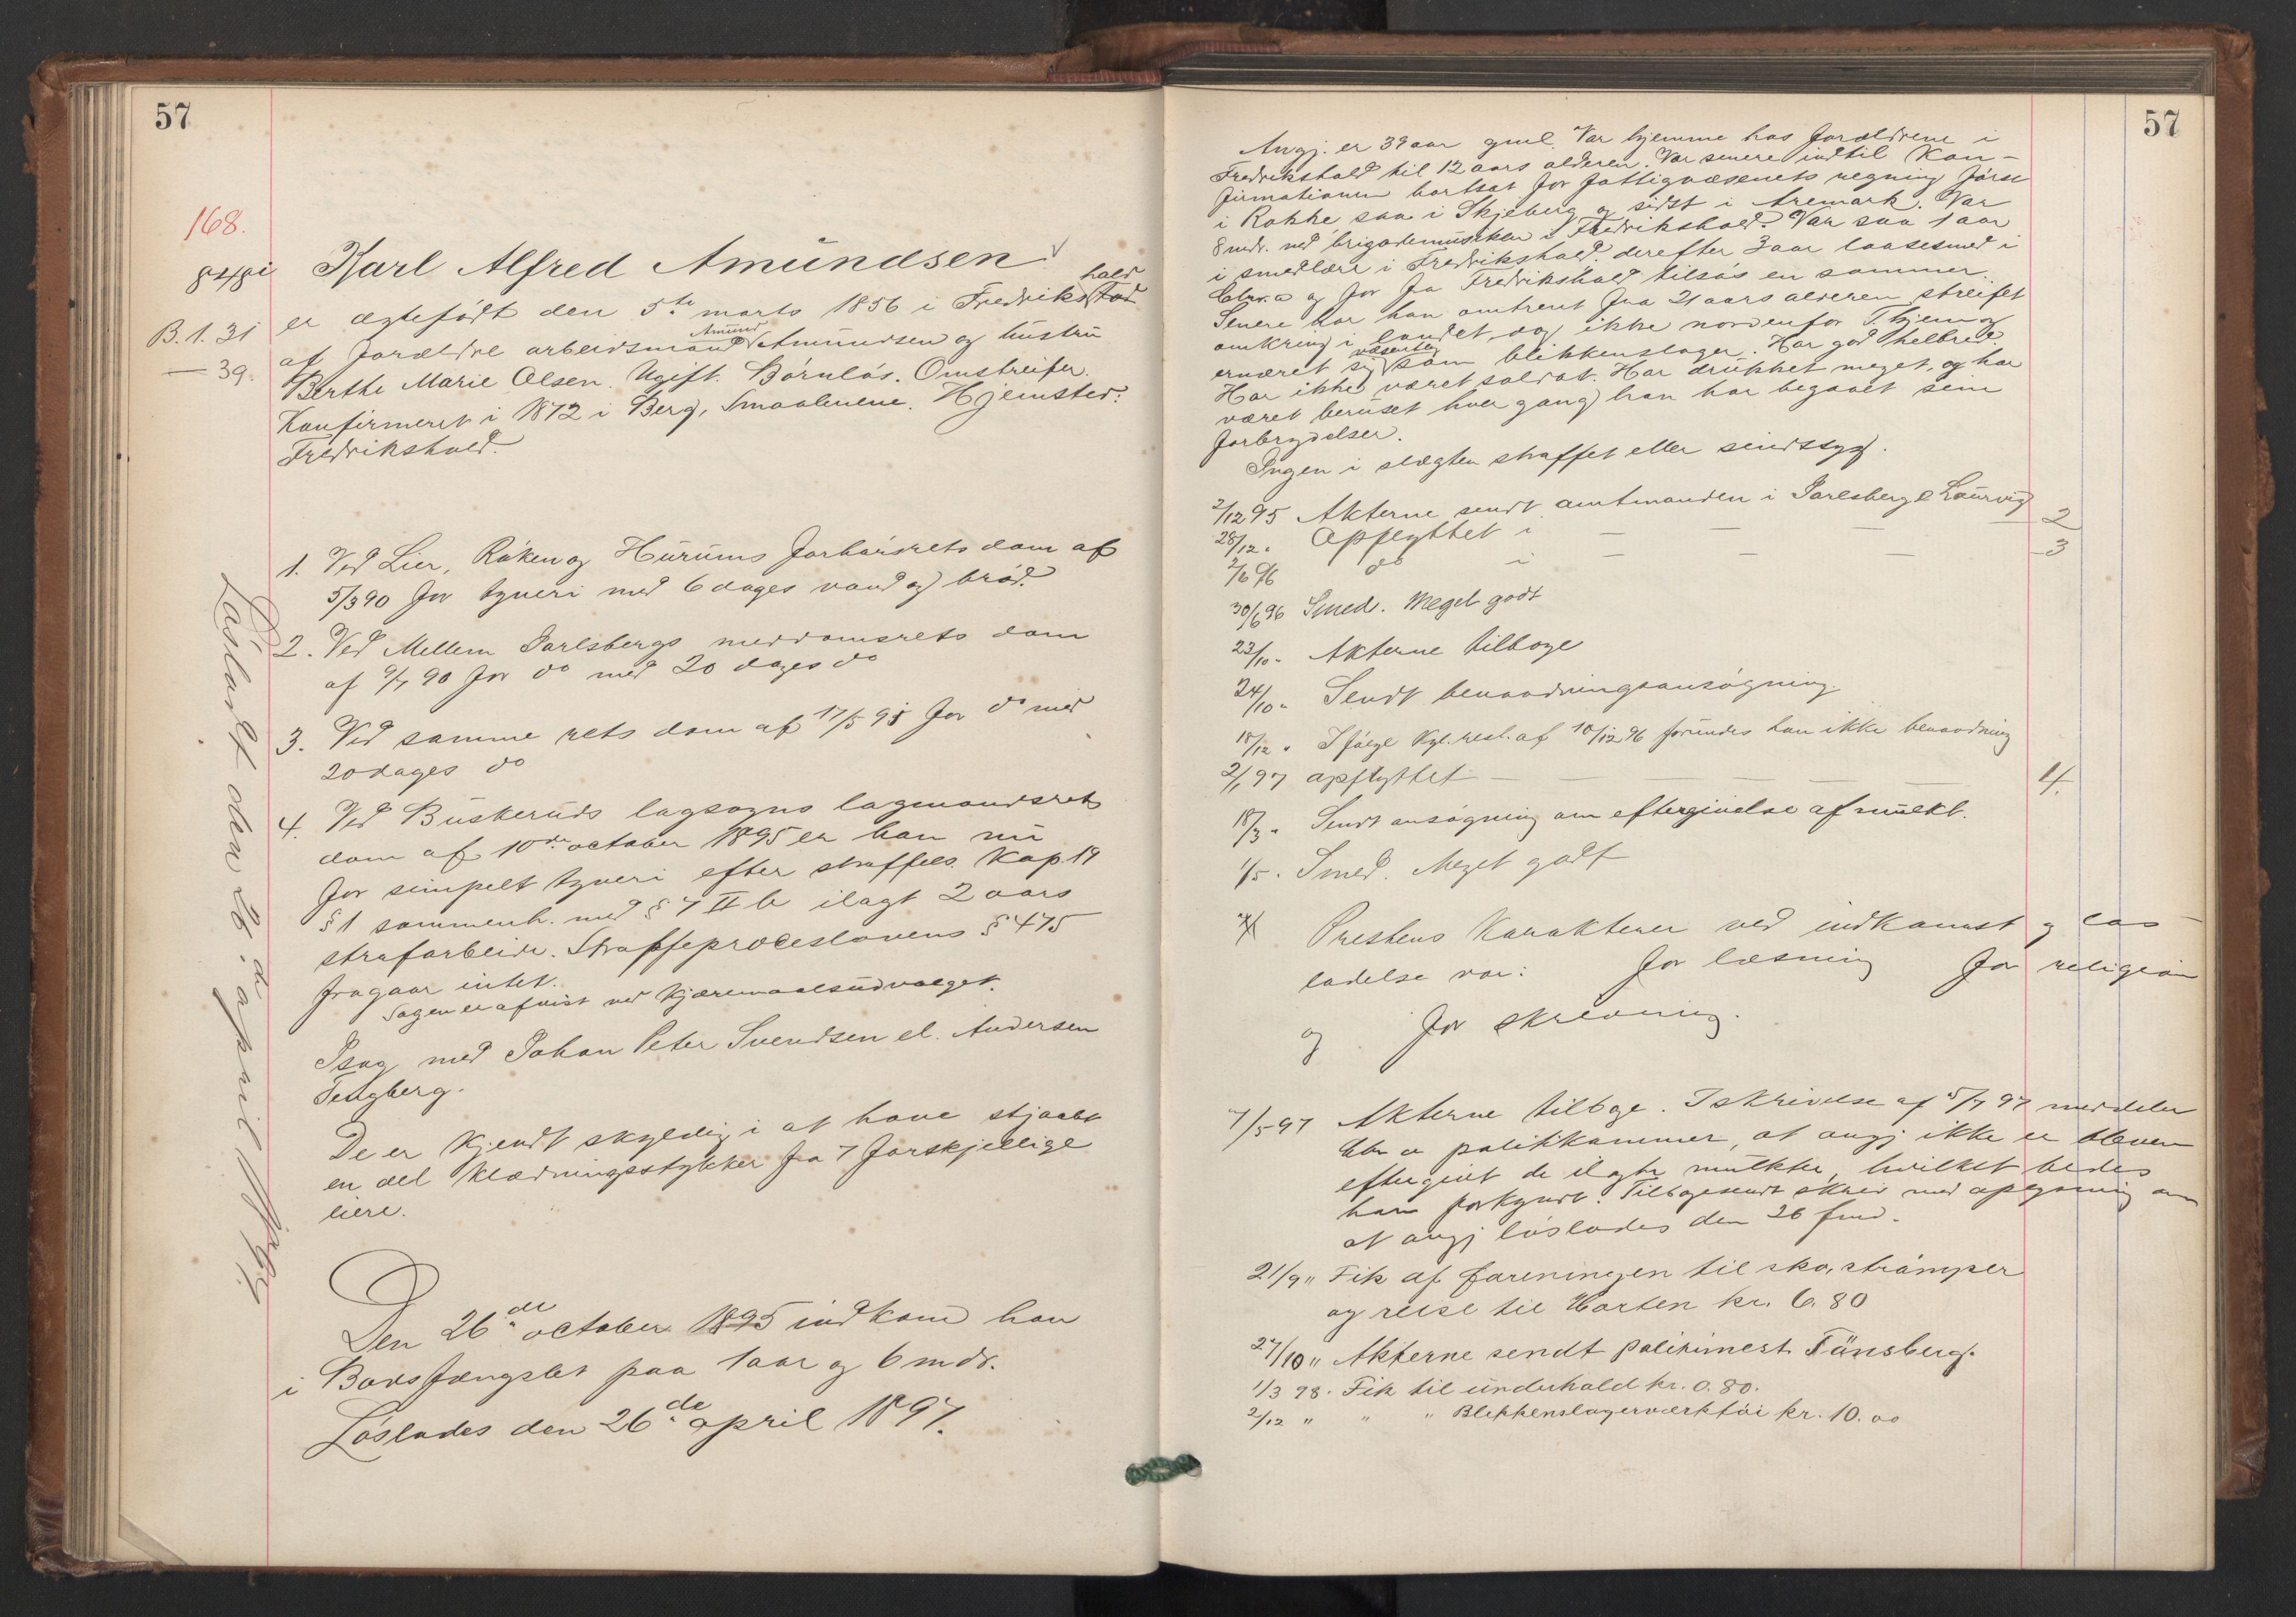 57
168.
848i
B. 1. 31
— 39.
Karl Alfred Amundsen
er ægtefødt den 5te marts 1856 i Fredrikshald
af forældre arbeidsmand Amund Amundsen og hustru
Berthe Marie Olsen. Ugift. Børnløs. Omstreifer.
Konfirmeret i 1872 i Berg, Smaalenene. Hjemsted:
Fredrikshald.
1. Ved Lier, Røken og Hurums forhørsrets dom af
5/3 90 for tyveri med 6 dages vand og brød.
2. Ved Mellem Jarlsbergs meddomsrets dom
af 9/7 90 for do med 20 dages do
3. Ved samme rets dom af 17/5 95 for do med
20 dages do
4. Ved Buskeruds lagsogns lagmandsrets
dom af 10de october 1895 er han nu
for simpelt tyveri efter straffels. Kap 19
§ 1 sammenh. med § 7 II b ilagt 2 aars
strafarbeide. Straffeproceslovens § 475
fragaar intet.
Sagen er afvist ved Kjæremaalsudvalget.
I sag med Johan Peter Svendsen el. Andersen
Tengberg.
De er kjendt skyldig i at have stjaalet
en del klædningsstykker fra 7 forskjellige
eiere.
Den 26de october 1895 indkom han
i Bodsfængslet paa 1 aar og 6 mdr.
Løslades den 26de april 1897.
Løsladt den 26de april 1897.
57
Angj. er 39 aar gml. Var hjemme hos forældrene i
Fredrikshald til 12 aars alderen. Var senere indtil Kon-
firmationen bortsat for fattigvæsenets regning først
i Rokke saa i Skjeberg og sidst i Aremark. Var
8 mdr. ved brigademusikken i Fredrikshald. Var saa 1 aar
i smedlære i Fredrikshald, derefter 3 aar laasesmed i
Chr.a og for fra Fredrikshald tilsøs en sommer.
Senere har han omtrent fra 21 aars alderen streifet
omkring i landet, dog ikke nordenfor T.hjem og
ernæret sig væsentlig som blikkenslager. Har god helbred.
Har ikke været soldat. Har drukket meget, og har
været beruset hver gang han har begaaet sine
forbrydelser.
Ingen i slægten straffet eller sindssyg.
2/12 95 Akterne sendt amtmanden i Jarlsberg & Laurvig
28/12 " Opflyttet i — — — 2
2/6 96 do i — — — 3
30/6 96 Smed. Meget godt
23/10 " Akterne tilbage
24/10 " Sendt benaadningsansøgning.
18/12 " Ifølge Kgl. resl. af 10/12 96 forundes han ikke benaadning
2/1 97 opflyttet — — — — — — 4.
18/3 " Sendt ansøgning om eftergivelse af mulkt.
1/5 " Smed. Meget godt
Prestens Karakterer ved indkomst og løs-
ladelse var: for læsning for religion
og for skrivning.
7/5 97 Akterne tilbage. I skrivelse af 5/7 97 meddeler
Chr a politikammer, at angj ikke er bleven
eftergivet de ilagte mulkter, hvilket bedes
ham forkyndt. Tilbagesendt skriv med oplysning om
at angj løslades den 26 fmd.
21/9 " Fik af foreningen til sko, strømper
og reise til Horten kr. 6.80
27/10 " Akterne sendt politimest. Tønsberg.
1/3 98. Fik til underhold kr. 0.80.
2/12 " " " Blikkenslagerværktøi kr. 10.00